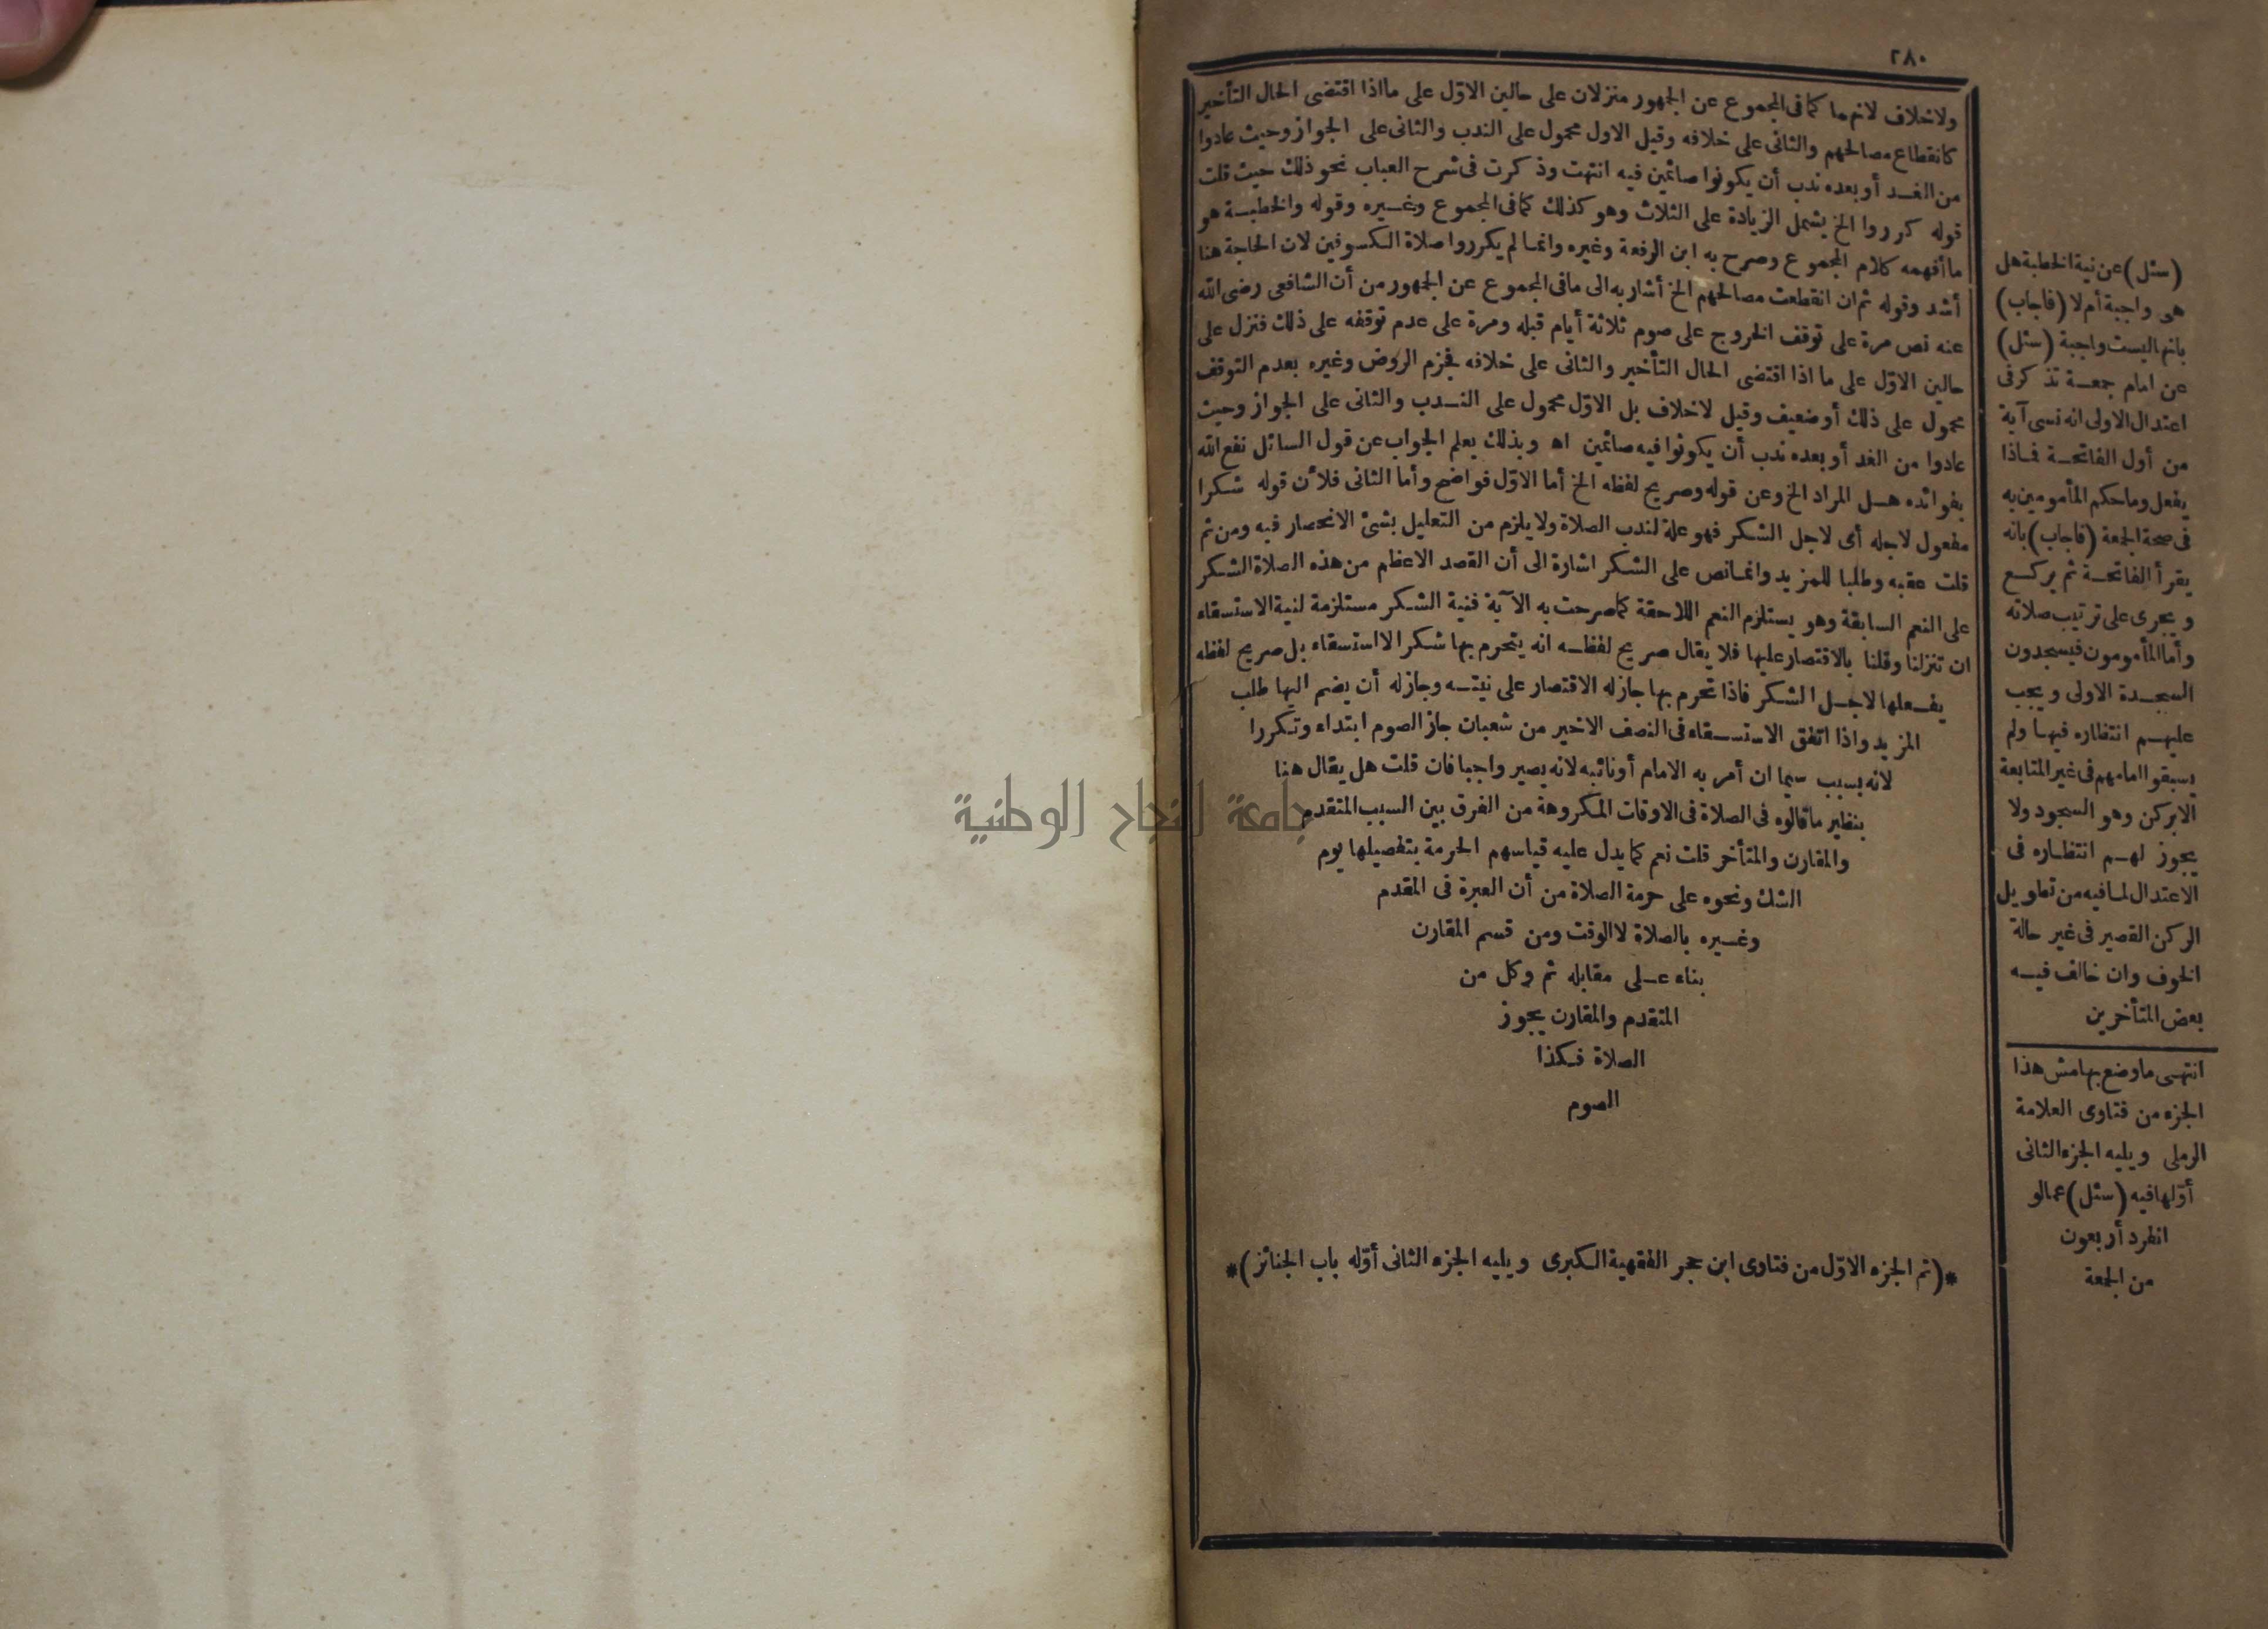 ٢٨٠
ولا خلاف لانهما كما فى المجموع عن الجمهور منزلان على حالين الاوّل على ما اذا اقتضى الحال التأخير
كانقطاع مصالحهم والثانى على خلافه وقيل الاول محمول على الندب والثانى على الجواز وحيث عادوا
من الغد أو بعده ندب أن يكونوا صائمين فيه انتهت وذكرت فى شرح العباب نحو ذلك حيث قلت
قوله كرروا الخ يشمل الزيادة على الثلاث وهو كذلك كما فى المجموع وغيره وقوله والخطبة هو
ما أفهمه كلام المجموع وصرح به ابن الرفعة وغيره وانما لم يكرروا صلاة الكسوفين لان الحاجة هنا
أشد وقوله ثم ان انقطعت مصالحهم الخ أشار به الى ما فى المجموع عن الجمهور من أن الشافعى رضى الله
عنه نص مرة على توقف الخروج على صوم ثلاثة أيام قبله ومرة على عدم توقفه على ذلك فنزل على
حالين الاوّل على ما اذا اقتضى الحال التأخير والثانى على خلافه فجزم الروض وغيره بعدم التوقف
محمول على ذلك أو ضعيف وقيل لا خلاف بل الاوّل محمول على الندب والثانى على الجواز وحيث
عادوا من الغد أو بعده ندب أن يكونوا فيه صائمين اه وبذلك يعلم الجواب عن قول السائل نفع الله
بفوائده هل المراد الخ وعن قوله وصريح لفظه الخ أما الاوّل فواضح وأما الثانى فلأن قوله شكرا
مفعول لاجله أى لاجل الشكر فهو علة لندب الصلاة ولا يلزم من التعليل بشئ الانحصار فيه ومن ثم
قلت عقبه وطلبا للمزيد وانما نص على الشكر اشارة الى أن القصد الاعظم من هذه الصلاة الشكر
على النعم السابقة وهو يستلزم النعم اللاحقة كما صرحت به الآية فنية الشكر مستلزمة لنية الاستسقاء
ان تنزلنا وقلنا بالاقتصار عليها فلا يقال صريح لفظه انه يتحرم بها شكرا لا استسقاء بل صريح لفظه
يفعلها لاجل الشكر فاذا تحرم بها جاز له الاقتصار على نيته وجاز له أن يضم اليها طلب
المزيد واذا اتفق الاستسقاء فى النصف الاخير من شعبان جاز الصوم ابتداء وتكررا
لانه بسبب سيما ان أمر به الامام أو نائبه لانه يصير واجبا فان قلت هل يقال هنا
بنظير ما قالوه فى الصلاة فى الاوقات المكروهة من الفرق بين السبب المتقدم
والمقارن والمتأخر قلت نعم كما يدل عليه قياسهم الحرمة بتفصيلها يوم
الشك ونحوه على حرمة الصلاة من أن العبرة فى المقدم
وغيره بالصلاة لا الوقت ومن قسم المقارن
بناء على مقابله ثم وكل من
المتقدم والمقارن يجوز
الصلاة فكذا
الصوم
*(تم الجزء الاوّل من فتاوى ابن حجر الفقهية الكبرى ويليه الجزء الثانى أوّله باب الجنائز)*
(سئل) عن نية الخطبة هل
هى واجبة أم لا (فاجاب)
بانها ليست واجبة (سئل)
عن امام جمعة تذكر فى
اعتدال الاولى انه نسى آية
من أول الفاتحة فماذا
يفعل وما حكم المأمومين به
فى صحة الجمعة (فاجاب) بانه
يقرأ الفاتحة ثم يركع
ويجرى على ترتيب صلاته
وأما المأمومون فيسجدون
السجدة الاولى ويجب
عليهم انتظاره فيها ولم
يسبقوا امامهم فى غير المتابعة
الا بركن وهو السجود ولا
يجوز لهم انتظاره فى
الاعتدال لما فيه من تطويل
الركن القصير فى غير حالة
الخوف وان خالف فيه
بعض المتأخرين
انتهى ما وضع بهامش هذا
الجزء من فتاوى العلامة
الرملى ويليه الجزء الثانى
أوّلها فيه (سئل) عمالو
انفرد أربعون
من الجمعة
جامعة النجاح الوطنية